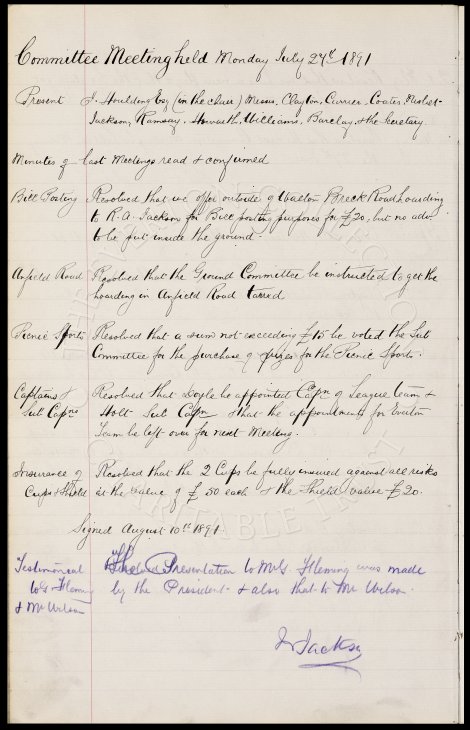 Committee Meeting held Monday July 27th 1891
Present J. Houlding Esq (in the chair) Messrs. Clayton, Currier, Coates, Nisbet
Jackson, Ramsay, Howarth, Williams, Barclay, & the Secretary.
Minutes of last Meetings read & confirmed
Bill Posting Resolved that we offer outside of Walton Breck Road hoarding
to R. A. Jackson for Bill posting purposes for £20, but no adv
to be put inside the ground.
Anfield Road Resolved that the Ground Committee be instructed to get the
hoarding in Anfield Road tarred
Picnic Sports Resolved that a sum not exceeding £15 be voted the Sub
Committee for the purchase of prizes for the Picnic Sports.
Captains & Resolved that Doyle be appointed Capn of League team &
Sub Capns Holt Sub Capn & that the appointments for Everton
Team be left over for next Meeting.
Insurance of Resolved that the 2 Cups be fully insured against all risks
Cups & Shield at the value of £50 each & the Shield value £20.
Signed August 10th 1891
Testimonial The Presentation to Mr G. Fleming was made
to G. Fleming by the President & also that to Mr Wilson.
& Mr Wilson
Jackson